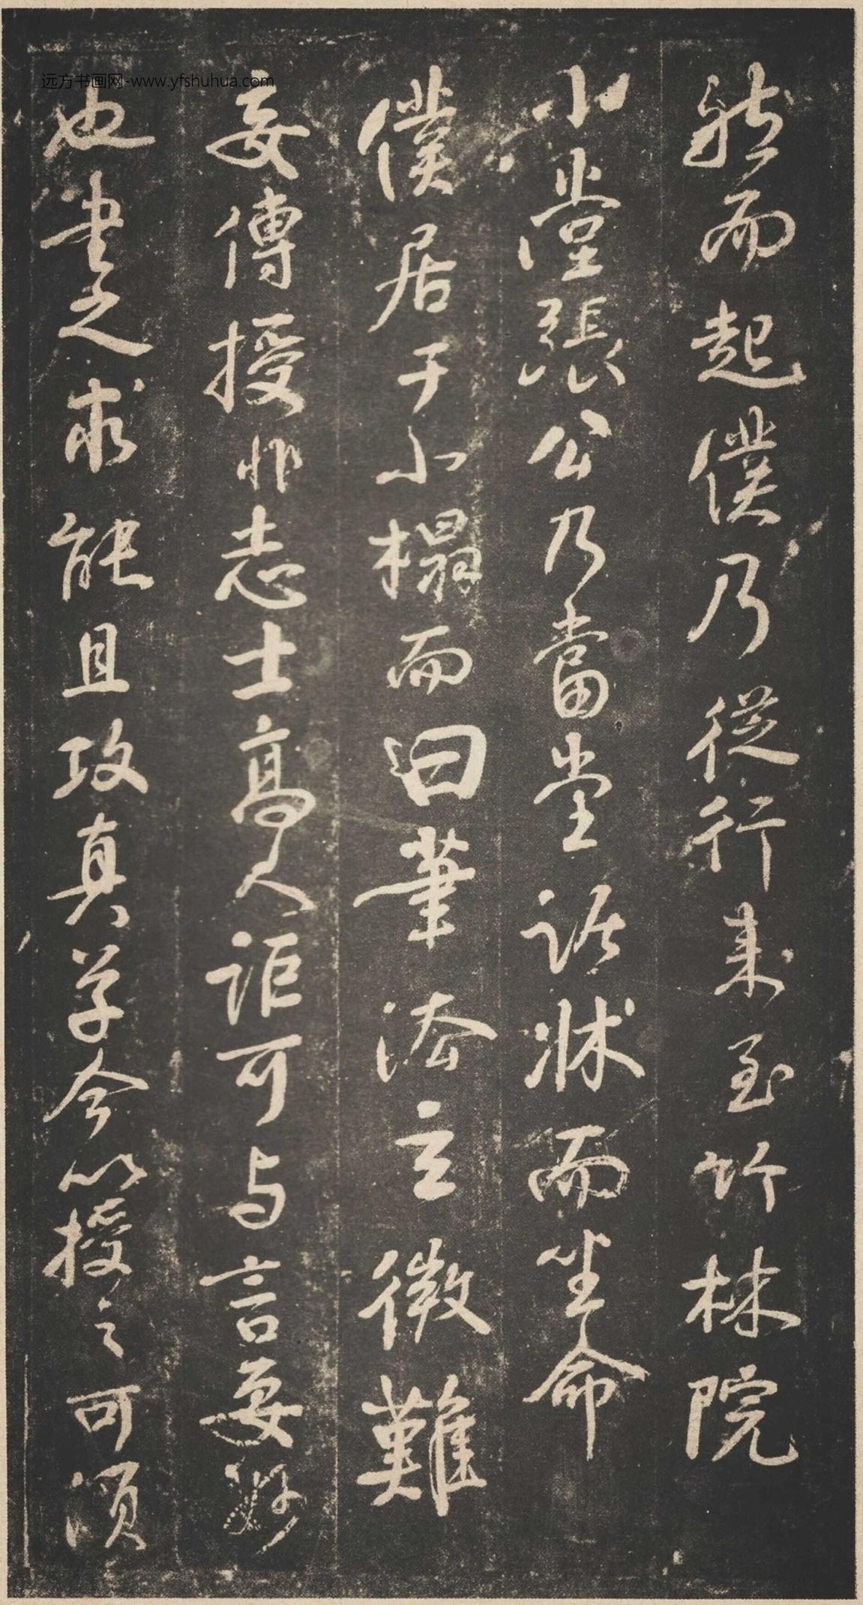 远方书画网-www.yfshuhua.com
然而起僕乃從行来至竹林院
小堂張公乃當堂踞牀而坐命
僕居于小榻而曰筆法玄微難
妄傳授非志士高人詎可与言要妙
也書之求能且攻真草今以授之可須